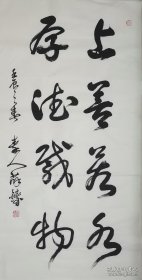 上善若水
厚德载物
壬辰之春